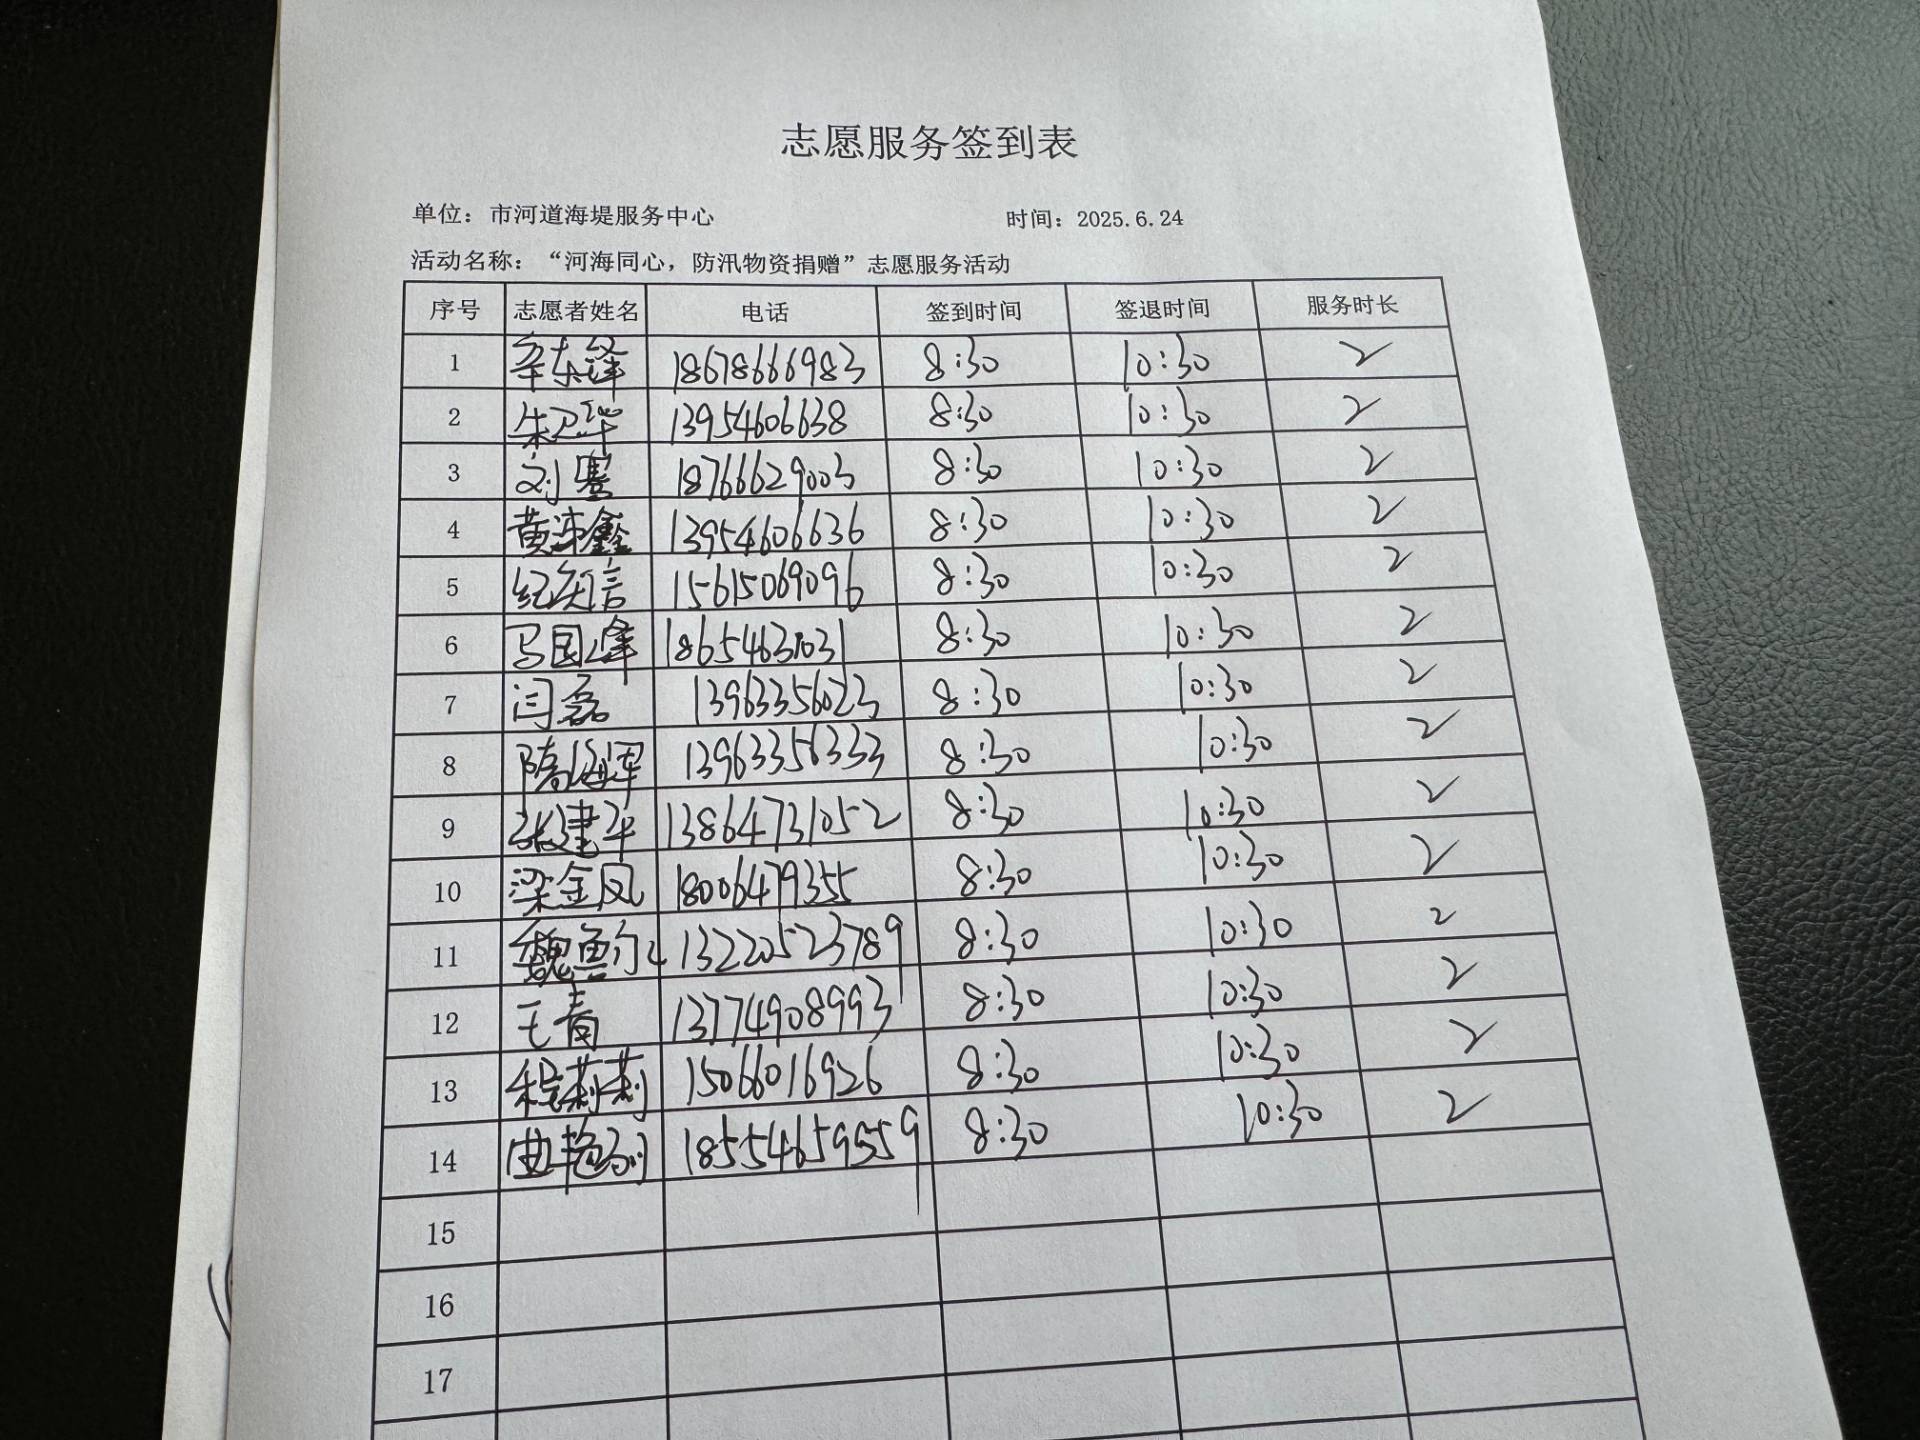 志愿服务签到表
单位：市河道海堤服务中心 时间：2025.6.24
活动名称：“河海同心，防汛物资捐赠”志愿服务活动
序号 志愿者姓名 电话 签到时间 签退时间 服务时长
1 辛东泽 18678666983 8:30 10:30 2
2 朱卫华 13954606638 8:30 10:30 2
3 刘 18766629003 8:30 10:30 2
4 黄沛鑫 13954606636 8:30 10:30 2
5 纪矢信 15615069096 8:30 10:30 2
6 马国峰 8:30 10:30 2
7 闫磊 13963356023 8:30 10:30 2
8 隋海军 13963356333 8:30 10:30 2
9 张建华 13864731052 8:30 10:30 2
10 梁金凤 18006479355 8:30 10:30 2
11 魏 13220523789 8:30 10:30 2
12 王青 13774908993 8:30 10:30 2
13 程莉莉 15066016926 8:30 10:30 2
14 曲艳丽 18554659559 8:30 10:30 2
15
16
17